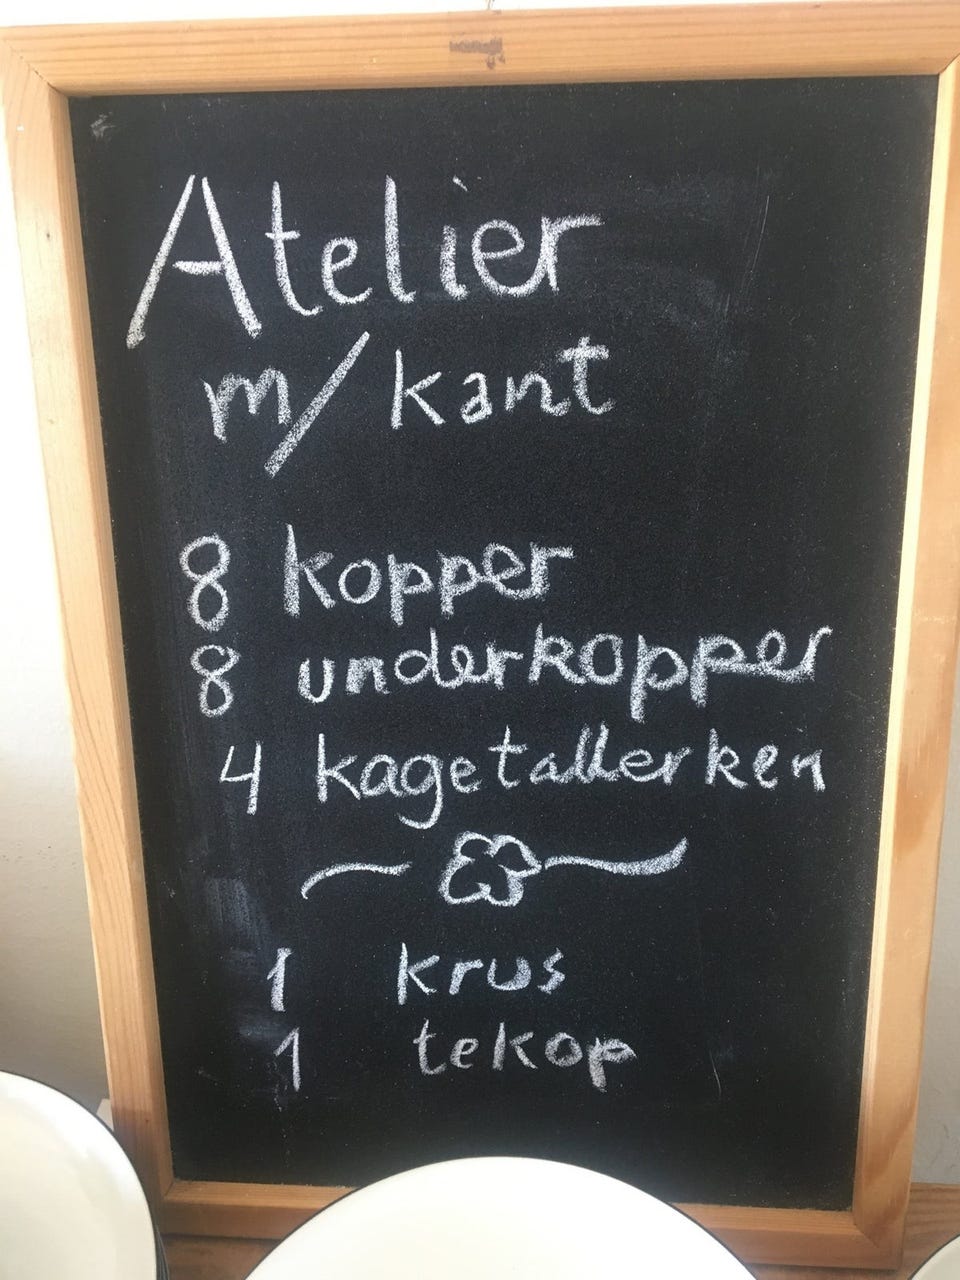 Atelier
m/kant
8 kopper
8 underkopper
4 kagetallerken
1 krus
1 tekop